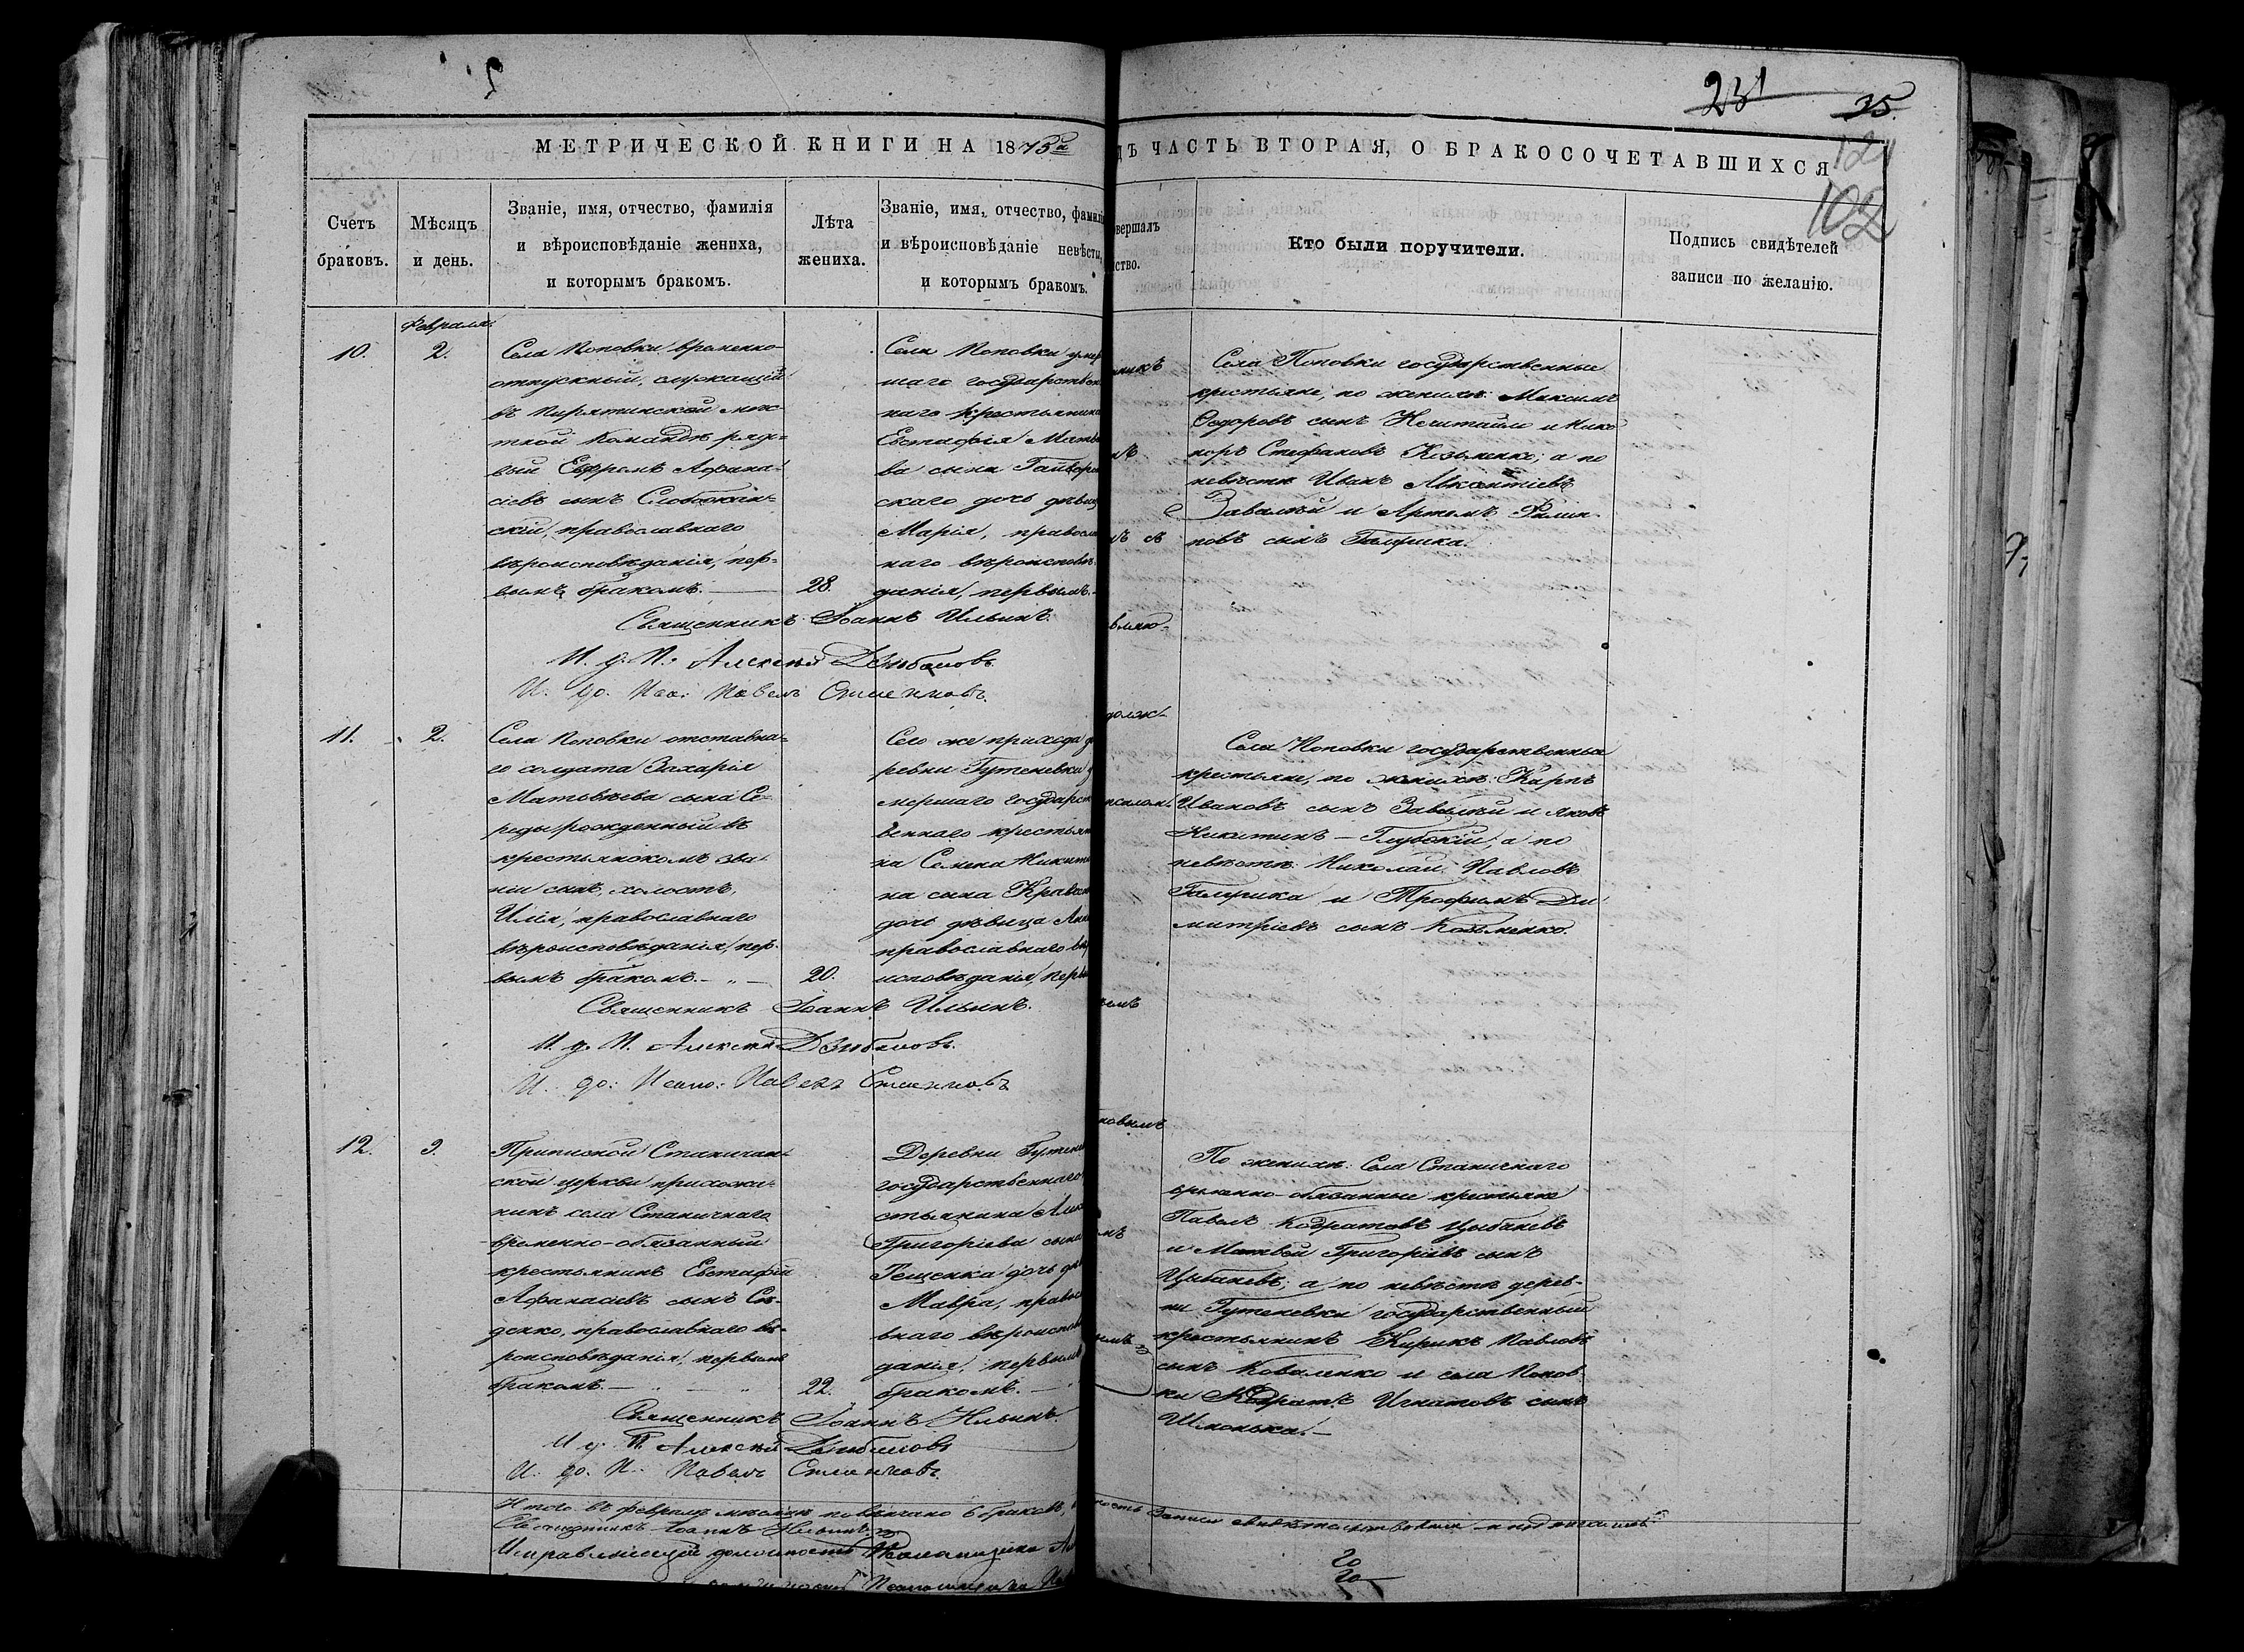 231
35.
121
102
МЕТРИЧЕСКОЙ КНИГИ НА 1873й
ДЪ ЧАСТЬ ВТОРАЯ, О БРАКОСОЧЕТАВШИХСЯ
Счетъ
браковъ.
Мѣсяцъ
и день.
Званіе, имя, отчество, фамилія
и вѣроисповѣданіе жениха,
и которымъ бракомъ.
Лѣта
жениха.
Званіе, имя, отчество, фамилія
и вѣроисповѣданіе невѣсты,
и которымъ бракомъ.
вершалъ
ство.
Кто были поручители.
Подпись свидѣтелей
записи по желанію.
Февраля.
10.
2.
Села Поповки временно-
отпускный, служащій
въ Пирятинской мѣс-
тной командѣ рядо-
вый Ефремъ Афана-
сіевъ сынъ
скій, православнаго
вѣроисповѣданія, пер-
вымъ бракомъ.
28.
Села Поповки умер
шаго государствен
наго крестьянина
Евстафія Матвѣ
ва сына Гайвор
скаго дочь дѣвиц
Марія, правосла
наго вѣроисповѣ
данія, первымъ.
никъ
Села Поповки государственные
крестьяне, по женихѣ: Максимъ
Ѳедоровъ сынъ Нечитайло и Нико
норъ Стефановъ Козьменко; а по
невѣстѣ Иванъ Авксентіевъ
Завалѣй и Артемъ Филип
повъ сынъ Галушка.
Священникъ Іоаннъ Ильинъ.
И. д. П. Алексѣй Дзюбановъ.
И. до. Пса: Павелъ
должı-
11.
2.
Села Поповки отставна-
го солдата Захарія
Матвѣева сына Се-
реды рожденный въ
крестьянскомъ зва-
ніи сынъ, холостъ,
Илія, православнаго
вѣроисповѣданія, пер-
вымъ бракомъ. - „ -
20.
Сего же прихода де
ревни Гутеневки у
мершаго государст
веннаго крестьян
на Семена Никити
на сына Кравч
дочь дѣвица Анн
православнаго вѣ
исповѣданія, перв
Села Поповки государственные
крестьяне, по женихѣ: Карпъ
Ивановъ сынъ Завалѣй и Яковъ
Никитинъ - Глубокій; а по
невѣстѣ: Николай Павловъ
Галушка и Трофимъ Ди
митріевъ сынъ Козьменко.
Священникъ Іоаннъ Ильинъ.
И. д. П. Алексѣй Дзюбановъ.
И. до: Псало: Павелъ
новымъ
12.
3.
Приписной Станичан-
ской церкви прихожа-
нинъ села Станичнаго
временно-обязанный
крестьянинъ Евстафій
Афанасіевъ сынъ
денко, православнаго вѣ-
роисповѣданія, первымъ
бракомъ.
22.
Деревни Гутене
государственнаго
стьянина
Григоріева сына
Гещенка дочь дѣ
Мавра, право
внаго вѣроиспов
данія, первымъ
бракомъ.
По женихѣ: Села Станичнаго
временно-обязанные крестьяне
Павелъ Кодратовъ Цыбаневъ
и Матвей Григоріевъ сынъ
Цыбаневъ; а по невѣстѣ дерев-
ни Гутеневки государственный
крестьянинъ Кирикъ Павловъ
сынъ Коваленко и села Попов
ки Кодратъ Игнатовъ сынъ
Шконька. -
Священникъ Іоаннъ Ильинъ.
И д. П. Алексѣй Дзюбановъ
И. до. П. Павелъ
Итого въ февралѣ мѣсяцѣ повѣнчано 6 браковъ,
Священникъ Іоаннъ Ильинъ.
Исправляющій должность Псаломщика Ал
Псаломщика Пав
ность записи свидѣтельствовали и подписались:
20
20